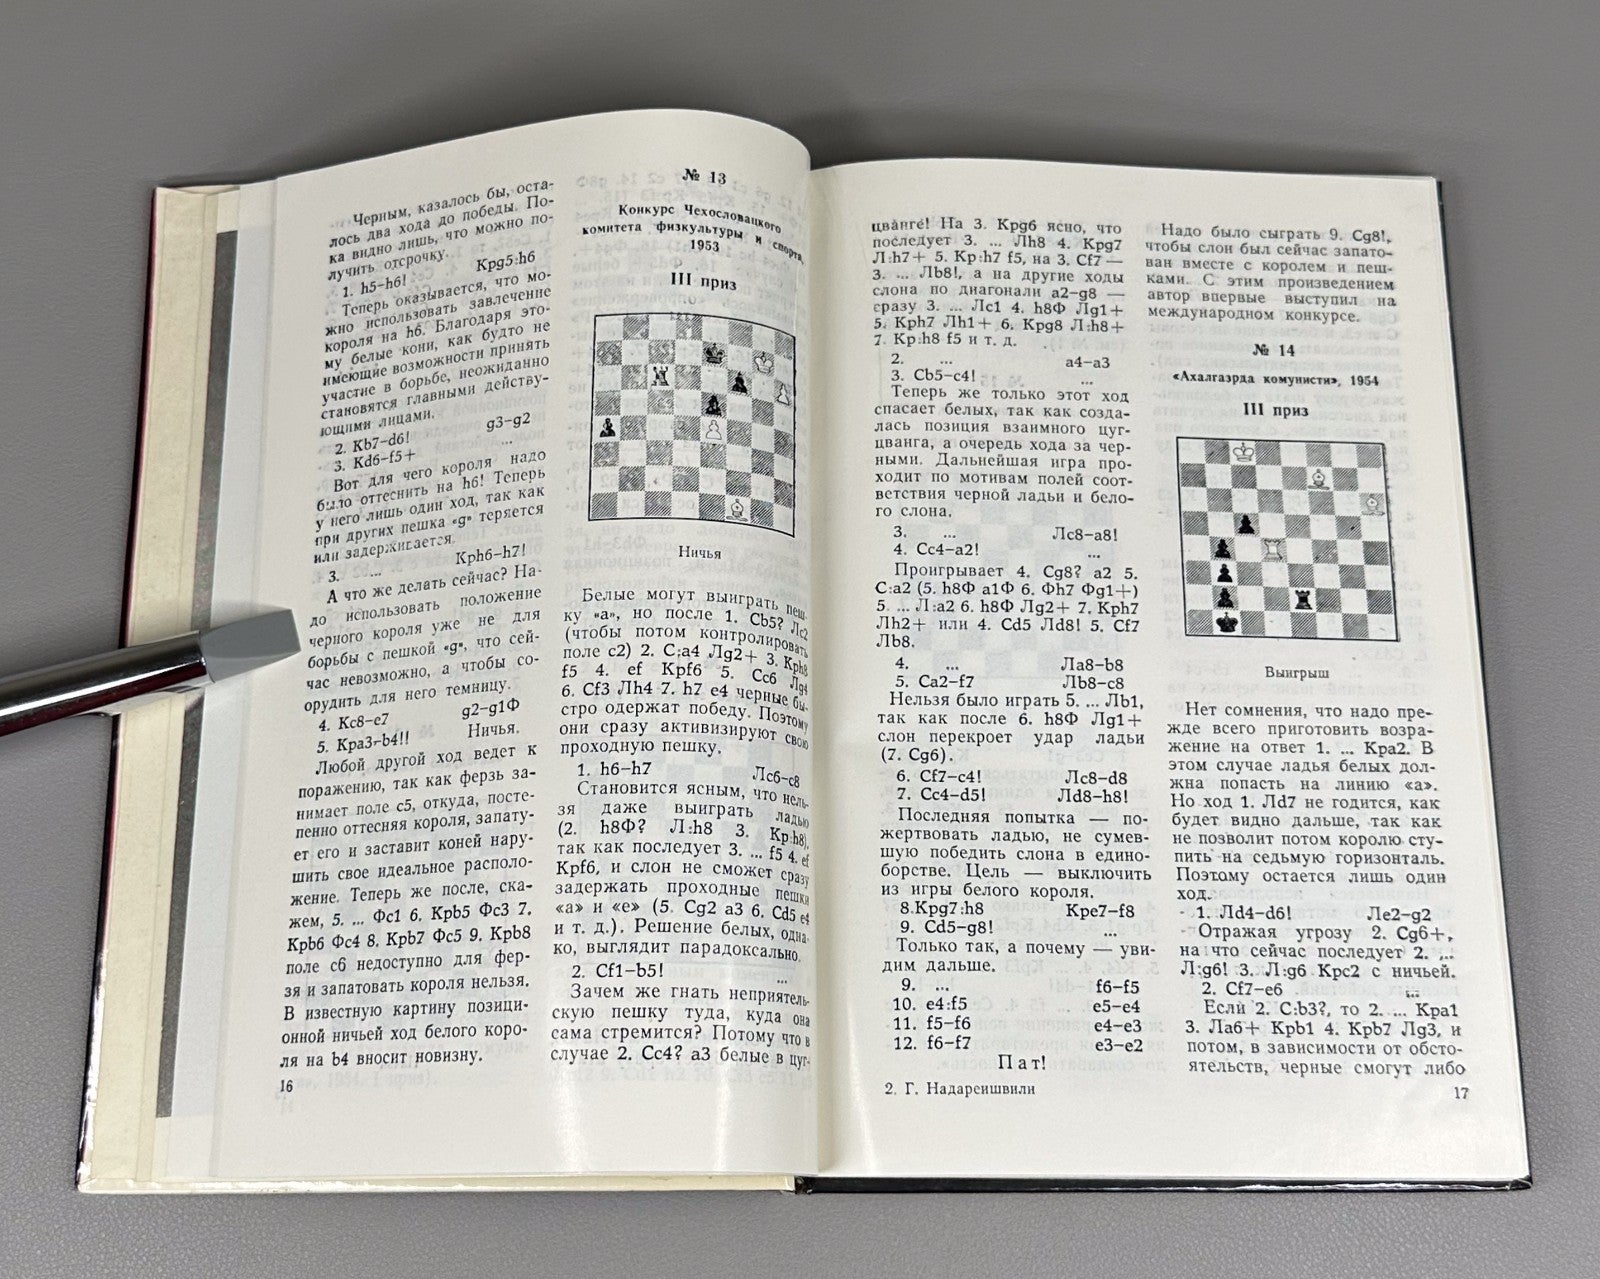 Черным, казалось бы, оста-
лось два хода до победы. По-
ка видно лишь, что можно по-
лучить отсрочку.
1. h5–h6! Kpg5:h6
Теперь оказывается, что мо-
жно использовать завлечение
короля на h6. Благодаря это-
му белые кони, как будто не
имеющие возможности принять
участие в борьбе, неожиданно
становятся главными действу-
ющими лицами.
2. Kb7–d6! g3–g2
3. Kd6–f5+ ...
Вот для чего короля надо
было оттеснить на h6! Теперь
у него лишь один ход, так как
при других пешка «g» теряется
или задерживается.
3. ... Kph6–h7!
А что же делать сейчас? На-
до использовать положение
черного короля уже не для
борьбы с пешкой «g», что сей-
час невозможно, а чтобы со-
орудить для него темницу.
4. Kc8–e7 g2–g1Ф
5. Kpa3–b4!! Ничья.
Любой другой ход ведет к
поражению, так как ферзь за-
нимает поле c5, откуда, посте-
пенно оттесняя короля, запату-
ет его и заставит коней нару-
шить свое идеальное располо-
жение. Теперь же после, ска-
жем, 5. ... Фc1 6. Kpb5 Фc3 7.
Kpb6 Фc4 8. Kpb7 Фc5 9. Kpb8
поле c6 недоступно для фер-
зя и запатовать короля нельзя.
В известную картину позици-
онной ничьей ход белого коро-
ля на b4 вносит новизну.
16
№ 13
Конкурс Чехословацкого
комитета физкультуры и спорта,
1953
III приз
Ничья
Белые могут выиграть пеш-
ку «a», но после 1. Cb5? Лc2
(чтобы потом контролировать
поле c2) 2. C:a4 Лg2+ 3. Kph8
f5 4. ef Kpf6 5. Cc6 Лg4
6. Cf3 Лh4 7. h7 e4 черные бы-
стро одержат победу. Поэтому
они сразу активизируют свою
проходную пешку.
1. h6–h7 Лc6–c8
Становится ясным, что нель-
зя даже выиграть ладью
(2. h8Ф? Л:h8 3. Kp:h8),
так как последует 3. ... f5 4. ef
Kpf6, и слон не сможет сразу
задержать проходные пешки
«a» и «e» (5. Cg2 a3 6. Cd5 e4
и т. д.). Решение белых, одна-
ко, выглядит парадоксально.
2. Cf1–b5! ...
Зачем же гнать неприятель-
скую пешку туда, куда она
сама стремится? Потому что в
случае 2. Cc4? a3 белые в цуг-
цванге! На 3. Kpg6 ясно, что
последует 3. ... Лh8 4. Kpg7
Л:h7+ 5. Kp:h7 f5, на 3. Cf7 —
3. ... Лb8!, а на другие ходы
слона по диагонали a2–g8 —
сразу 3. ... Лc1 4. h8Ф Лg1+
5. Kph7 Лh1+ 6. Kpg8 Л:h8+
7. Kp:h8 f5 и т. д.
2. ... a4–a3
3. Cb5–c4! ...
Теперь же только этот ход
спасает белых, так как созда-
лась позиция взаимного цуг-
цванга, а очередь хода за чер-
ными. Дальнейшая игра про-
ходит по мотивам полей соот-
ветствия черной ладьи и бело-
го слона.
3. ... Лc8–a8!
4. Cc4–a2! ...
Проигрывает 4. Cg8? a2 5.
C:a2 (5. h8Ф a1Ф 6. Фh7 Фg1+)
5. ... Л:a2 6. h8Ф Лg2+ 7. Kph7
Лh2+ или 4. Cd5 Лd8! 5. Cf7
Лb8.
4. ... Лa8–b8
5. Ca2–f7 Лb8–c8
Нельзя было играть 5. ... Лb1,
так как после 6. h8Ф Лg1+
слон перекроет удар ладьи
(7. Cg6).
6. Cf7–c4! Лc8–d8
7. Cc4–d5! Лd8–h8!
Последняя попытка — по-
жертвовать ладью, не сумев-
шую победить слона в едино-
борстве. Цель — выключить
из игры белого короля.
8.Kpg7:h8 Kpe7–f8
9. Cd5–g8! ...
Только так, а почему — уви-
дим дальше.
9. ... f6–f5
10. e4:f5 e5–e4
11. f5–f6 e4–e3
12. f6–f7 e3–e2
Пат!
2. Г. Надареишвили
Надо было сыграть 9. Cg8!,
чтобы слон был сейчас запато-
ван вместе с королем и пеш-
ками. С этим произведением
автор впервые выступил на
международном конкурсе.
№ 14
«Ахалгазрда комунисти», 1954
III приз
Выигрыш
Нет сомнения, что надо пре-
жде всего приготовить возра-
жение на ответ 1. ... Kpa2. В
этом случае ладья белых дол-
жна попасть на линию «a».
Но ход 1. Лd7 не годится, как
будет видно дальше, так как
не позволит потом королю сту-
пить на седьмую горизонталь.
Поэтому остается лишь один
ход.
1. Лd4–d6! Лe2–g2
Отражая угрозу 2. Cg6+,
на что сейчас последует 2. ...
Л:g6! 3. Л:g6 Kpc2 с ничьей.
2. Cf7–e6 ...
Если 2. C:b3?, то 2. ... Kpa1
3. Лa6+ Kpb1 4. Kpb7 Лg3, и
потом, в зависимости от обсто-
ятельств, черные смогут либо
17